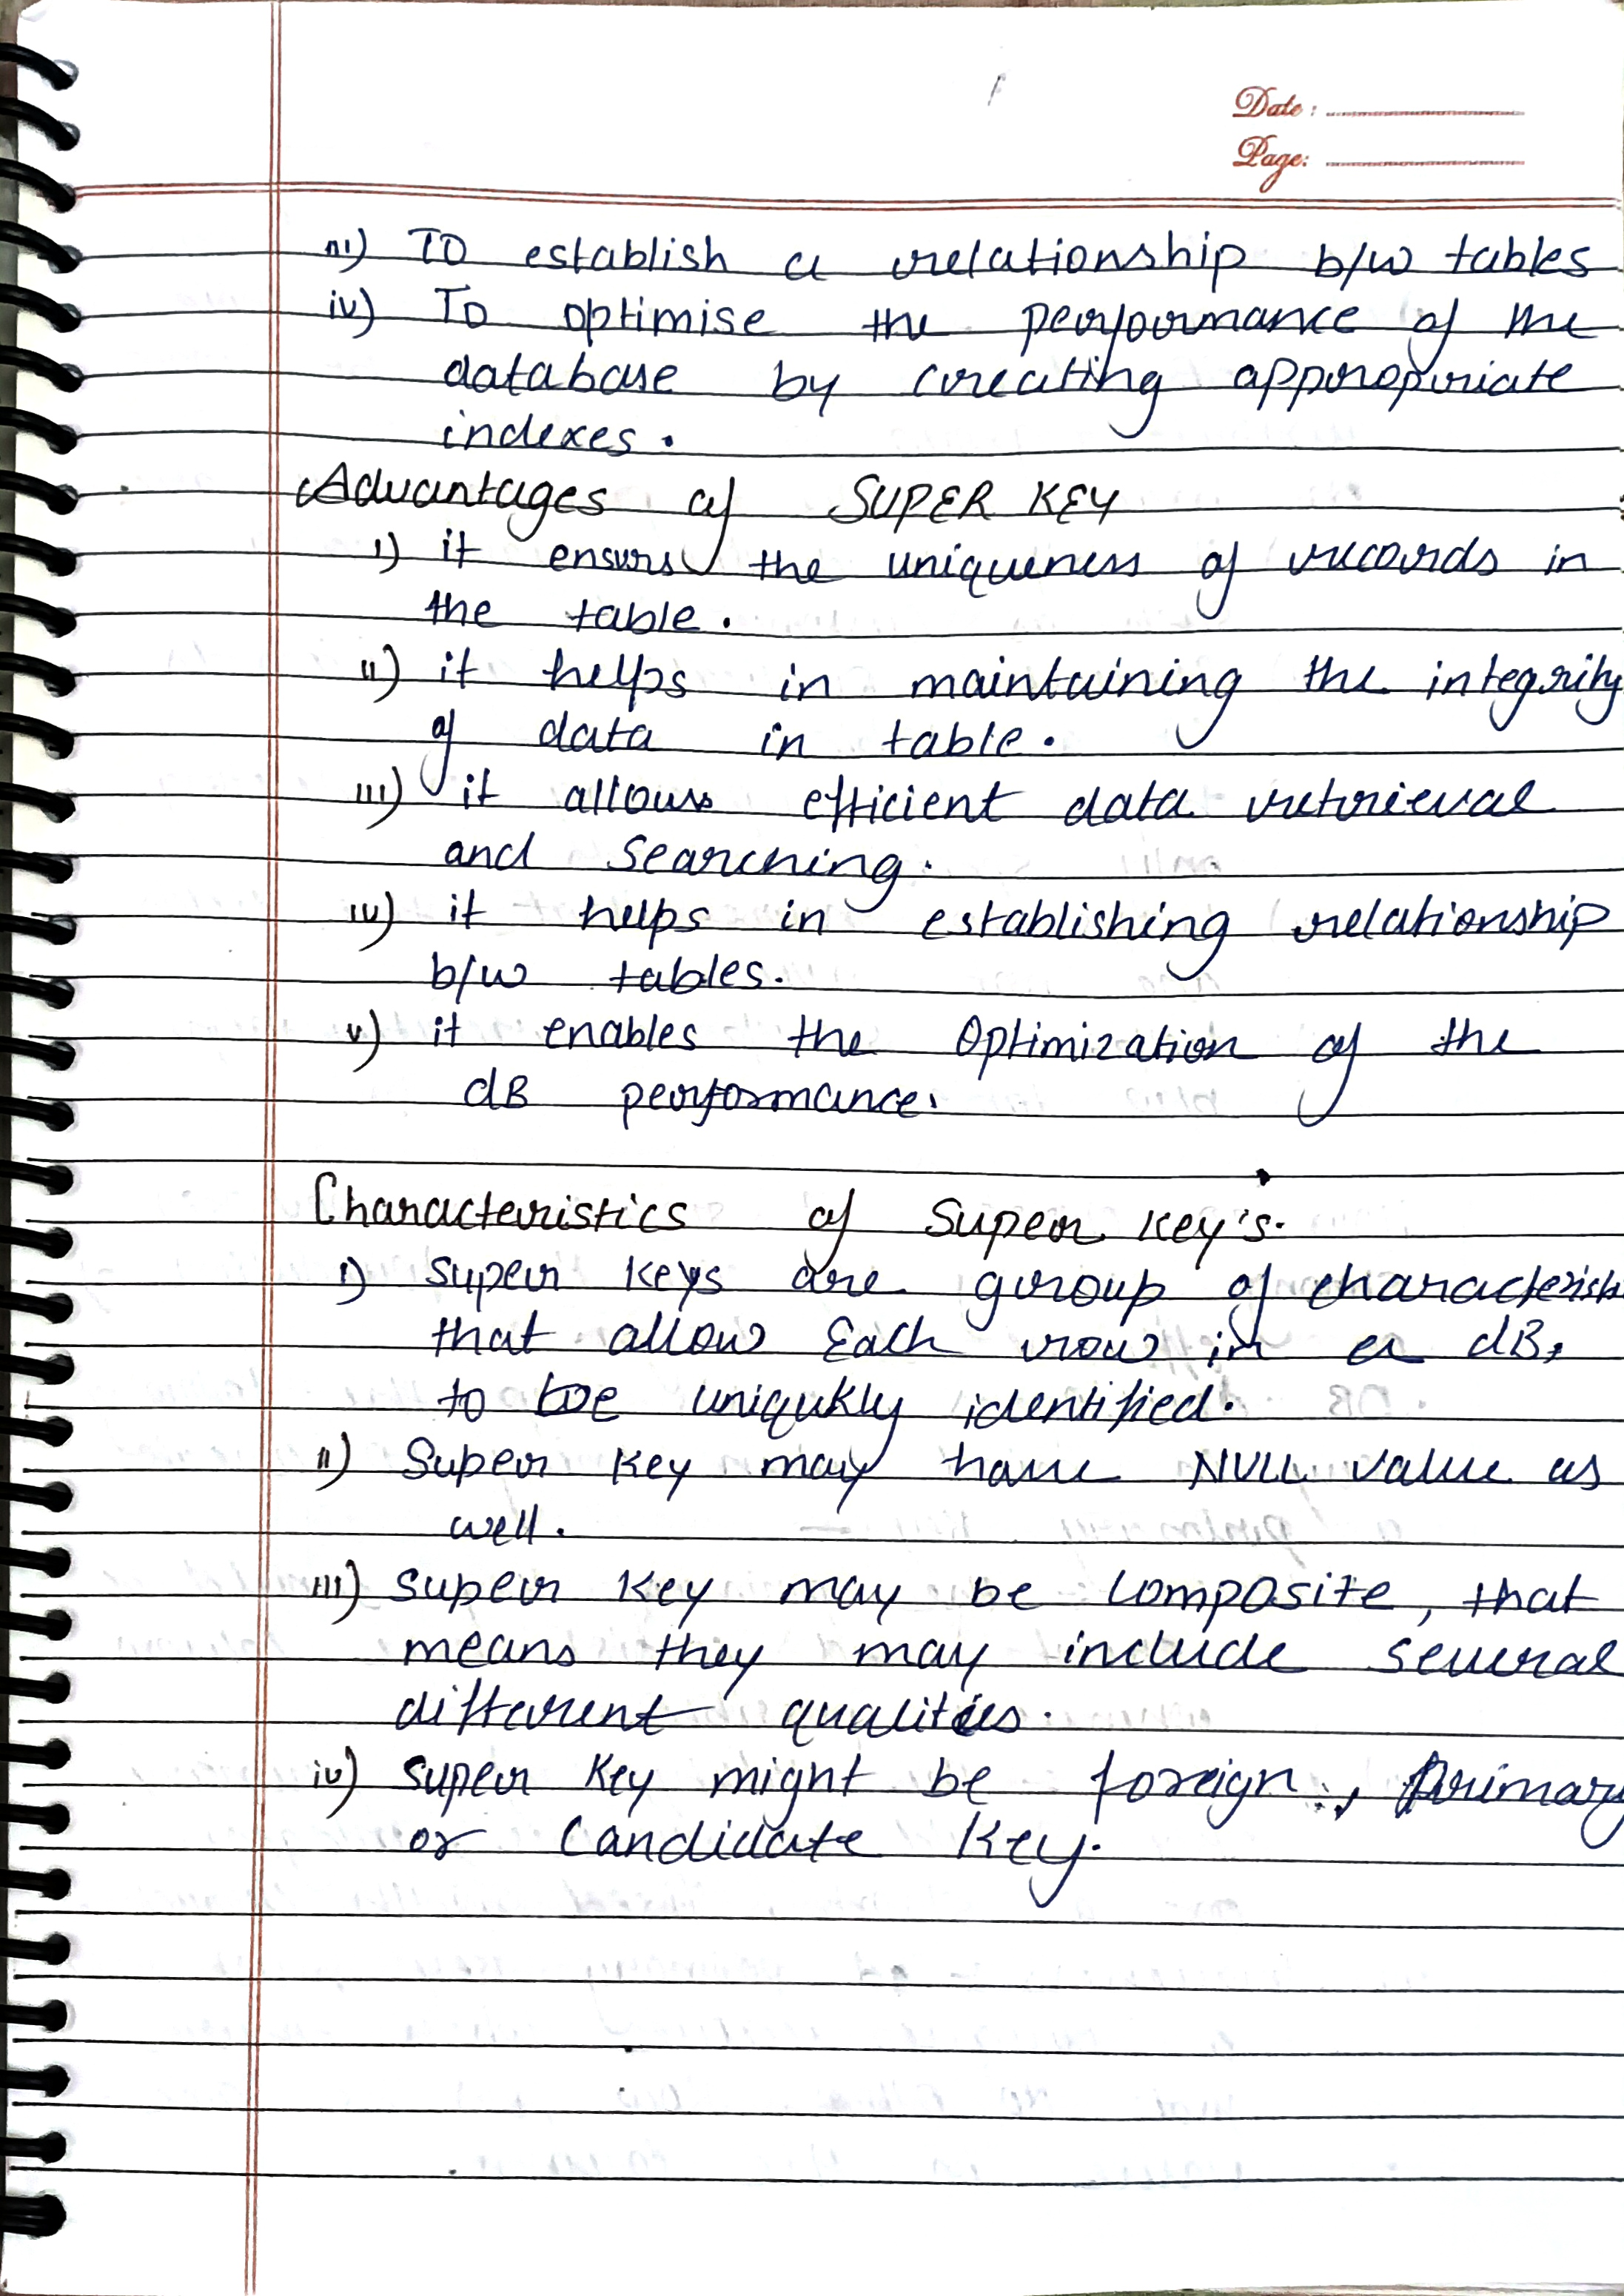 Date :
Page:
iii) TO establish a relationship b/w tables
iv) To optimise the performance of the
database by creating appropriate
indexes.
Advantages of SUPER KEY
i) it ensurs the uniqueness of records in
the table.
ii) it helps in maintaining the integrity
of data in table.
iii) it allows efficient data retrieval
and searching.
iv) it helps in establishing relationship
b/w tables.
v) it enables the Optimization of the
dB performance.
Characteristics of Super key's.
i) super keys are group of characterist
that allow Each row in a dB,
to be uniqukly identified.
ii) Super key may have NULL value as
well.
iii) super key may be composite, that
means they may include several
different qualities.
iv) super key might be foreign, primary
or Candidate key.